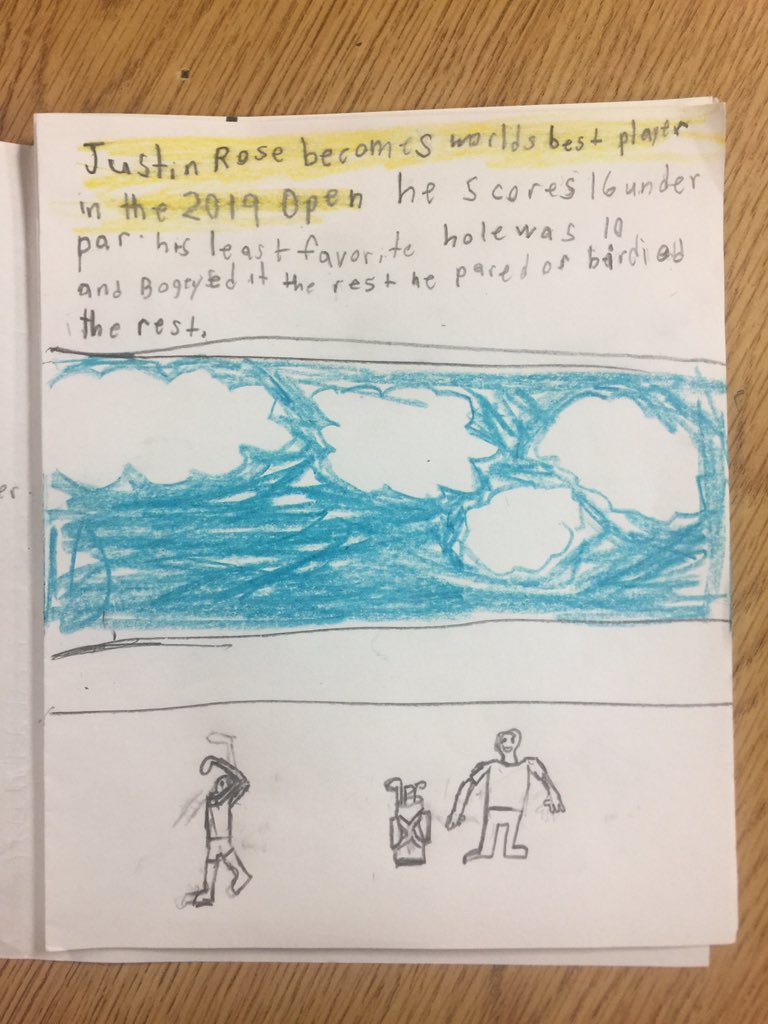 Justin Rose becomes worlds best player
in the 2019 Open he scores 16 under
par. his least favorite hole was 10
and Bogeysed it the rest he pared or birdied
the rest.
er.